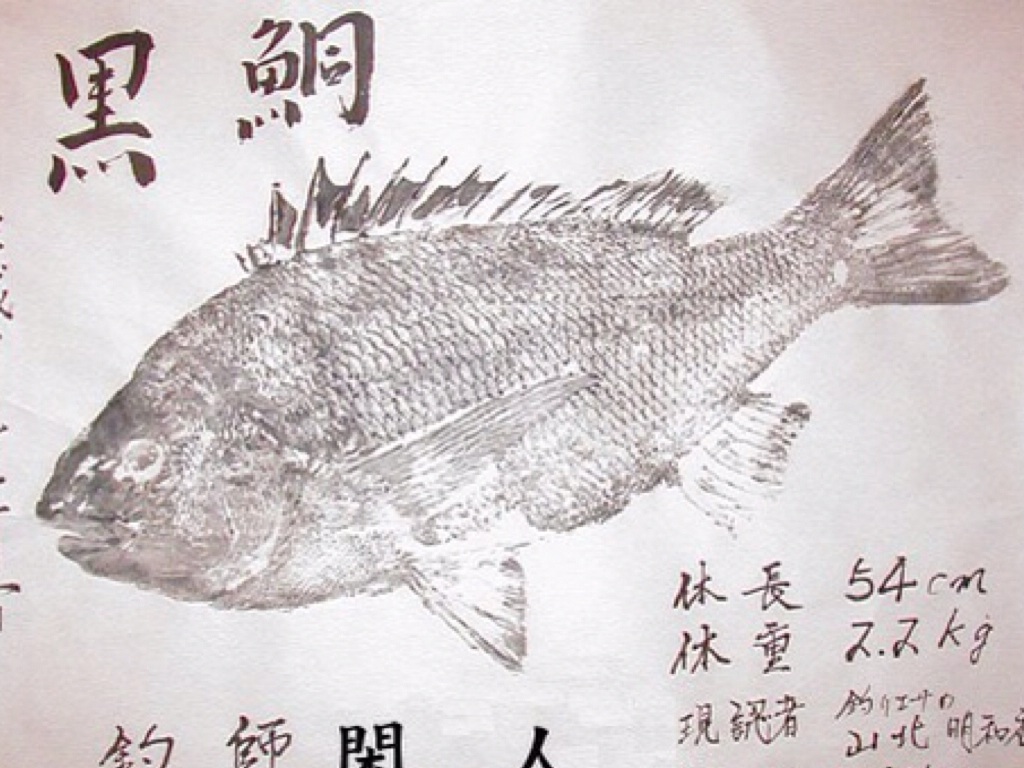 黒鯛
体長 54cm
体重 2.2kg
現認者 釣りエサの
山北 明和
釣師 閑人